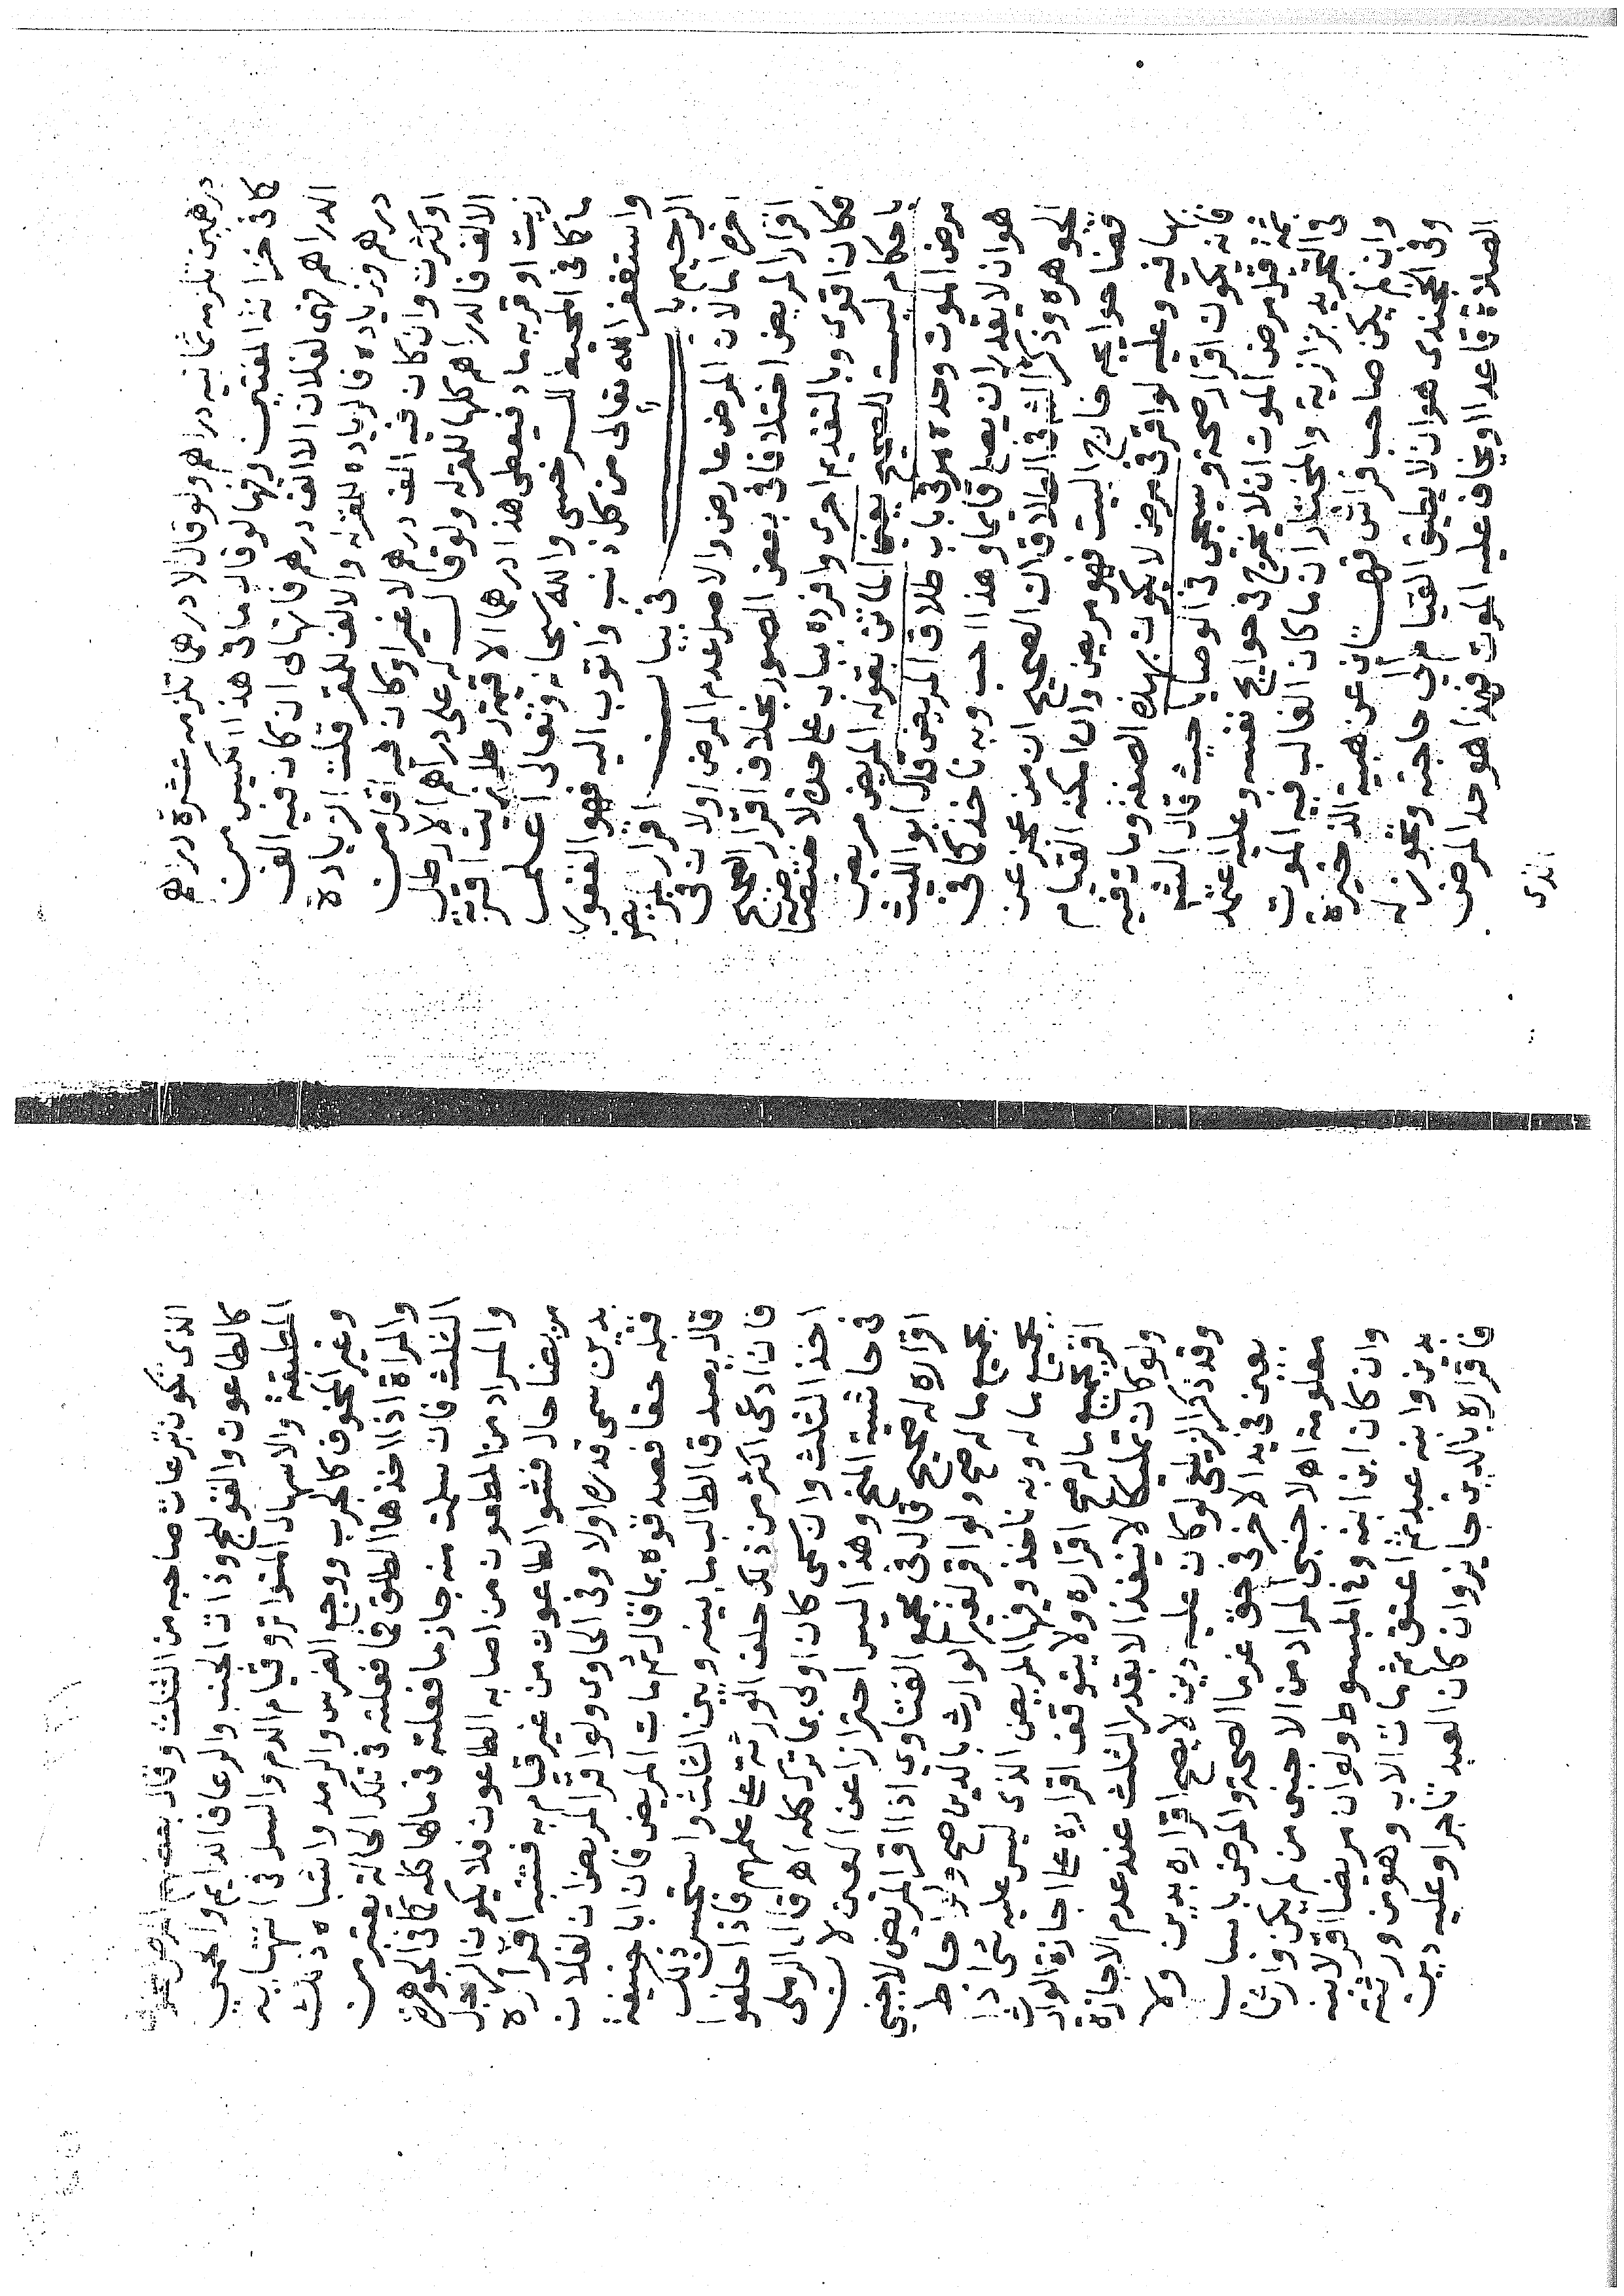 درهمين تلزمه ثمانيه دراهم ولو قال الا درهما تلزمه عشرة دراهم
كما فى خزانة المفتين وفيها لو قال ما فى هذا الكيس من
الدراهم فهى لفلان الا الف درهم فانها ان كان فيه الف
درهم وزياده فالزياده للمقر له والالف للمقر قلت الزيادة
او كثرت وان كان فيه الف درهم لا غير او كان فيه اقل من
الالف فالدراهم كلها للمقر له ولو قال له على دراهم الا رطل
زيت او قربه ماء فيعطى هذا درهما الا قيمة رطل زيت او قربة
ما كما فى المحيط للسرخسى والله سبحانه وتعالى اعلم
واستغفر الله تعالى من كل ذنب واتوب اليه فهو الغفور
الرحيم باب فى بيان اقرار المريض
اخره اما لان المرض عارض والاصل عدم المرض او لان فى
اقرار المريض اختلافا فى بعض الصور بخلاف اقرار الصحيح
فكان اقوى وبالتقديم احرى وافرده بباب على حدة لاختصاصه
باحكام ليست للصحيح يعنى الماتن بقوله المريض مريض
مرض الموت وحده مر فى باب طلاق المريض قال ابو الليث
هو ان لا يقدر ان يصلى قائما وهذا احب وبه ناخذ كما فى
الجوهره وذكر الش فى الطلاق ان الصحيح ان من عجز عن
قضا حوايجه خارج البيت فهو مريض وان امكنه القيام
بها فيه وعليه لو اقر فى مرض لا يكون بهذه الصفة ومات فيه
فانه يكون اقرار صحة وسيجى فى الوصايا حيث قال الش
ثمة قيل مرض الموت ان لا يخرج فى حوايج نفسه وعليه اعتمد
فى التجريد بزازية والمختار ان ما كان الغالب فيه الموت
وان لم يكن صاحب فراش قهستانى عن هبة الذخيرة
وفى الخجندى هو ان لا يطيق القيام الى حاجته وتجوز له
الصلاة قاعدا او يخاف عليه الموت فهذا هو حد المرض
الذى
الذى تكون تبرعات صاحبه من الثلث وقال بعضهم المرض المخوف
كالطاعون والقولنج وذات الجنب والرعاف الدايم والحمى
المطبقة والاسهال المتواتر وقيام الدم والسل فى انتهايه
وغير المخوف كالجرب ووجع الضرس والرمد واشباه ذلك
والمراة اذا اخذها الطلق فما فعلته فى تلك الحالة يعتبر من
الثلث فان سلمت منه جاز ما فعلته فى مالها كله كما فى الجوهرة
والمراد من المطعون من اصابه الطاعون فلا يكون الرجل
مريضا حال فشو الطاعون من غير قيام به فتنبه اقراره
بدين سمى قدره اولا وفى الحاوى ولو اقر المريض ان لفلان
قبله حقا فصدقوه بما قال ثم مات المريض فان ابا حنيفة
قال يصدق الطالب ما بينه وبين الثلث واستحسن ذلك
فان ادعى اكثر من ذلك حلف الورثة على علمهم فاذا حلفوا
اخذ الثلث وان سمى كان اولى بما ترك كله اهـ قال الرملى
فى حاشية المنح وهذا ليس احترازا عن العين لان
اقراره له صحيح قال فى مجمع الفتاوى اذا اقر المريض لاجنبى
بجميع ماله صح ولو اقر لغير الوارث بالدين صح ولو احاط
بجميع ماله وبه ناخذ وفيها المريض الذى ليس عليه شى اذا
اقر بجميع ماله صح اقراره ولا يتوقف اقراره على اجازة الوارث
ولو كان تمليكا لا ينفذ الا بقدر الثلث عند عدم الاجازة
وقد ذكر الزيلعى لو كان عليه دين لا يصح اقراره بدين ولا
بعين فى يد الاخر فى حق غرما الصحة والمرض باسباب
معلومة اهـ الاجنبى المراد من الاجنبى من لم يكن وارثا
وان كان ابن ابنه وفى المبسوط ولو ان مريضا اقر لابنه
بدين وابنه عبد ثم اعتق ثم مات الاب وهو من ورثته
فاقراره بالدين جايز وان كان العبد تاجرا وعليه دين